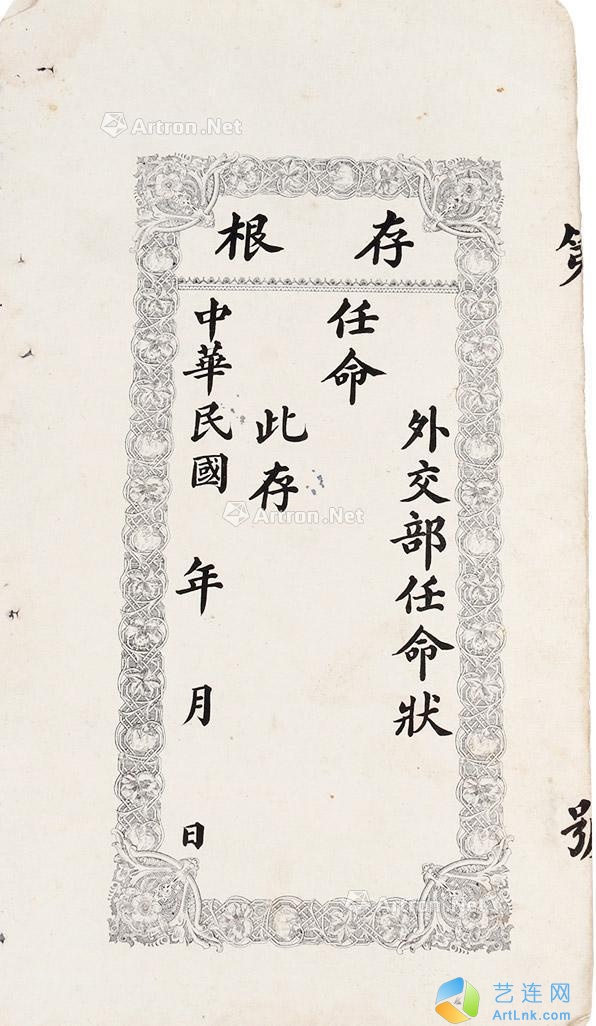 存根
第 號
外交部任命狀
任命
此存
中華民國 年 月 日
Artron.Net
Artron.Net
Artron.Net
艺连网
ArtLnk.com